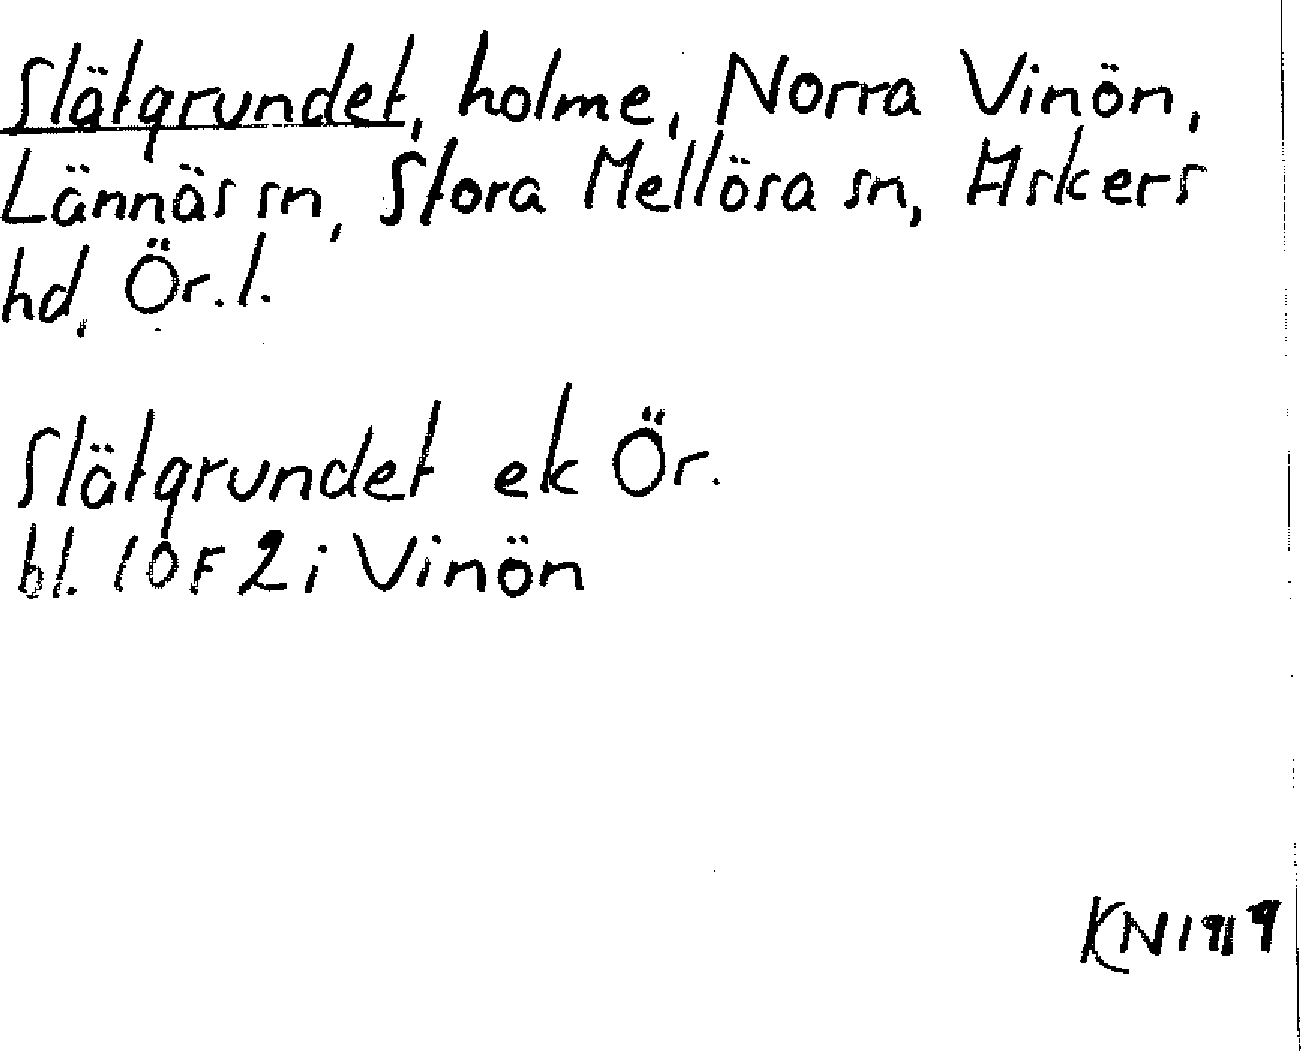 Slätgrundet, holme, Norra Vinön,
Lännäs sn, Stora Mellösa sn, Askers
hd, Ör. l.
Slätgrundet ek Ör.
bl. 10F 2i Vinön
KN